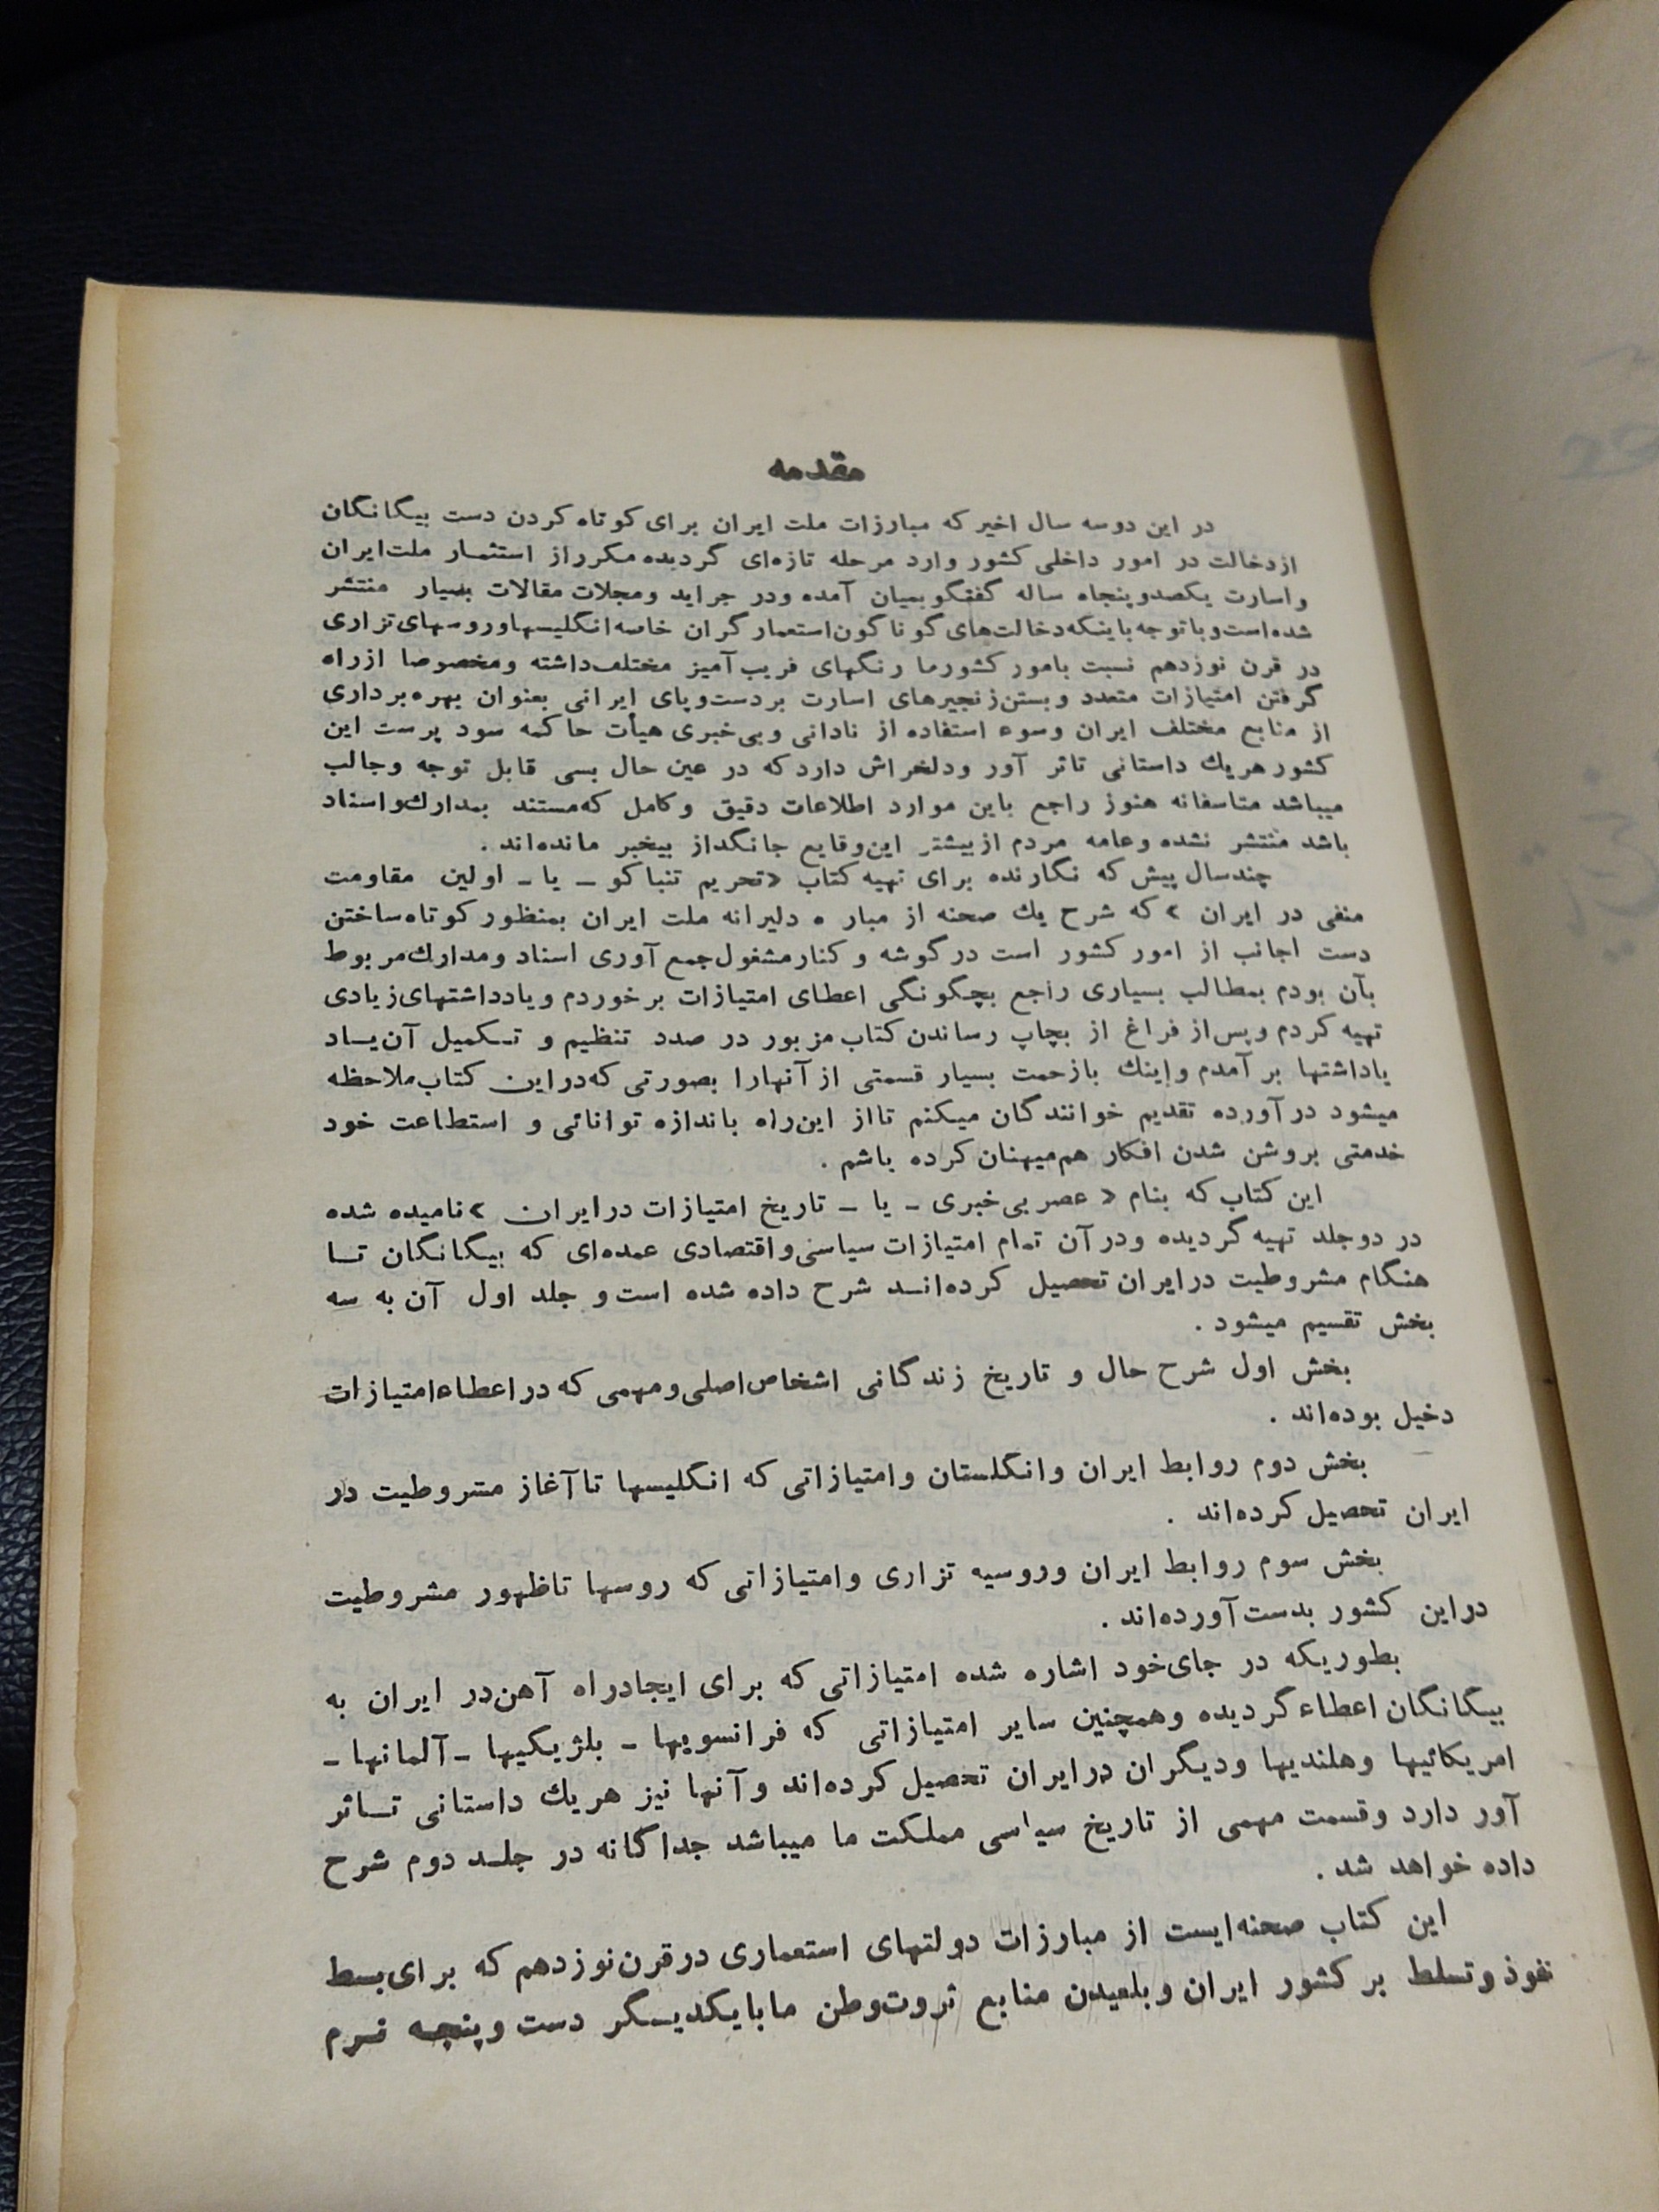 مقدمه
در این دوسه سال اخیر که مبارزات ملت ایران برای کوتاه کردن دست بیگانگان
ازدخالت در امور داخلی کشور وارد مرحله تازه‌ای گردیده مکرراز استثمار ملت‌ایران
واسارت یکصدوپنجاه ساله گفتگوبمیان آمده ودر جراید ومجلات مقالات بسیار منتشر
شده‌است‌وباتوجه باینکه‌دخالت‌های گوناگون‌استعمارگران خاصه‌انگلیسهاوروسهای‌تزاری
در قرن نوزدهم نسبت بامورکشورما رنگهای فریب‌آمیز مختلف‌داشته ومخصوصا ازراه
گرفتن امتیازات متعدد وبستن‌زنجیرهای اسارت بردست‌وپای ایرانی بعنوان بهره‌برداری
از منابع مختلف ایران وسوء استفاده از نادانی وبی‌خبری هیأت حاکمه سود پرست این
کشور هریك داستانی تاثر آور ودلخراش داردکه در عین حال بسی قابل توجه وجالب
میباشد متاسفانه هنوز راجع باین موارد اطلاعات دقیق وکامل که‌مستند بمدارك‌واسناد
باشد منتشر نشده وعامه مردم ازبیشتر این‌وقایع جانگداز بیخبر مانده‌اند .
چندسال پیش که نگارنده برای تهیه کتاب «تحریم تنباکو – یا – اولین مقاومت
منفی در ایران » که شرح یك صحنه از مبار ه دلیرانه ملت ایران بمنظور کوتاه‌ساختن
دست اجانب از امور کشور است درگوشه وکنارمشغول‌جمع‌آوری اسناد ومدارك‌مربوط
بآن بودم بمطالب بسیاری راجع بچگونگی اعطای امتیازات برخوردم ویادداشتهای‌زیادی
تهیه کردم وپس‌از فراغ از بچاپ رساندن کتاب مزبور در صدد تنظیم و تکمیل آن‌یاد
یاداشتها برآمدم واینك بازحمت بسیار قسمتی ازآنهارا بصورتی که‌دراین کتاب‌ملاحظه
میشود درآورده تقدیم خوانندگان میکنم تااز این‌راه باندازه توانائی و استطاعت خود
خدمتی بروشن شدن افکار هم‌میهنان کرده باشم .
این کتاب که بنام « عصر بی‌خبری – یا – تاریخ امتیازات درایران » نامیده شده
در دوجلد تهیه گردیده ودرآن تمام امتیازات سیاسی‌واقتصادی عمده‌ای که بیگانگان تا
هنگام مشروطیت درایران تحصیل کرده‌اند شرح داده شده است و جلد اول آن به سه
بخش تقسیم میشود .
بخش اول شرح حال و تاریخ زندگانی اشخاص‌اصلی‌ومهمی که دراعطاءامتیازات
دخیل بوده‌اند .
بخش دوم روابط ایران وانگلستان وامتیازاتی که انگلیسها تاآغاز مشروطیت در
ایران تحصیل کرده‌اند .
بخش سوم روابط ایران وروسیه تزاری وامتیازاتی که روسها تاظهور مشروطیت
دراین کشور بدست‌آورده‌اند .
بطوریکه در جای‌خود اشاره شده امتیازاتی که برای ایجادراه آهن‌در ایران به
بیگانگان اعطاء گردیده وهمچنین سایر امتیازاتی که فرانسویها – بلژیکیها – آلمانها –
امریکائیها وهلندیها ودیگران درایران تحصیل کرده‌اند وآنها نیز هریك داستانی تاثر
آور دارد وقسمت مهمی از تاریخ سیاسی مملکت ما میباشد جداگانه در جلد دوم شرح
داده خواهد شد .
این کتاب صحنه‌ایست از مبارزات دولتهای استعماری درقرن‌نوزدهم که برای‌بسط
نفوذ وتسلط بر کشور ایران وبلعیدن منابع ثروت‌وطن مابایکدیگر دست وپنجه نرم